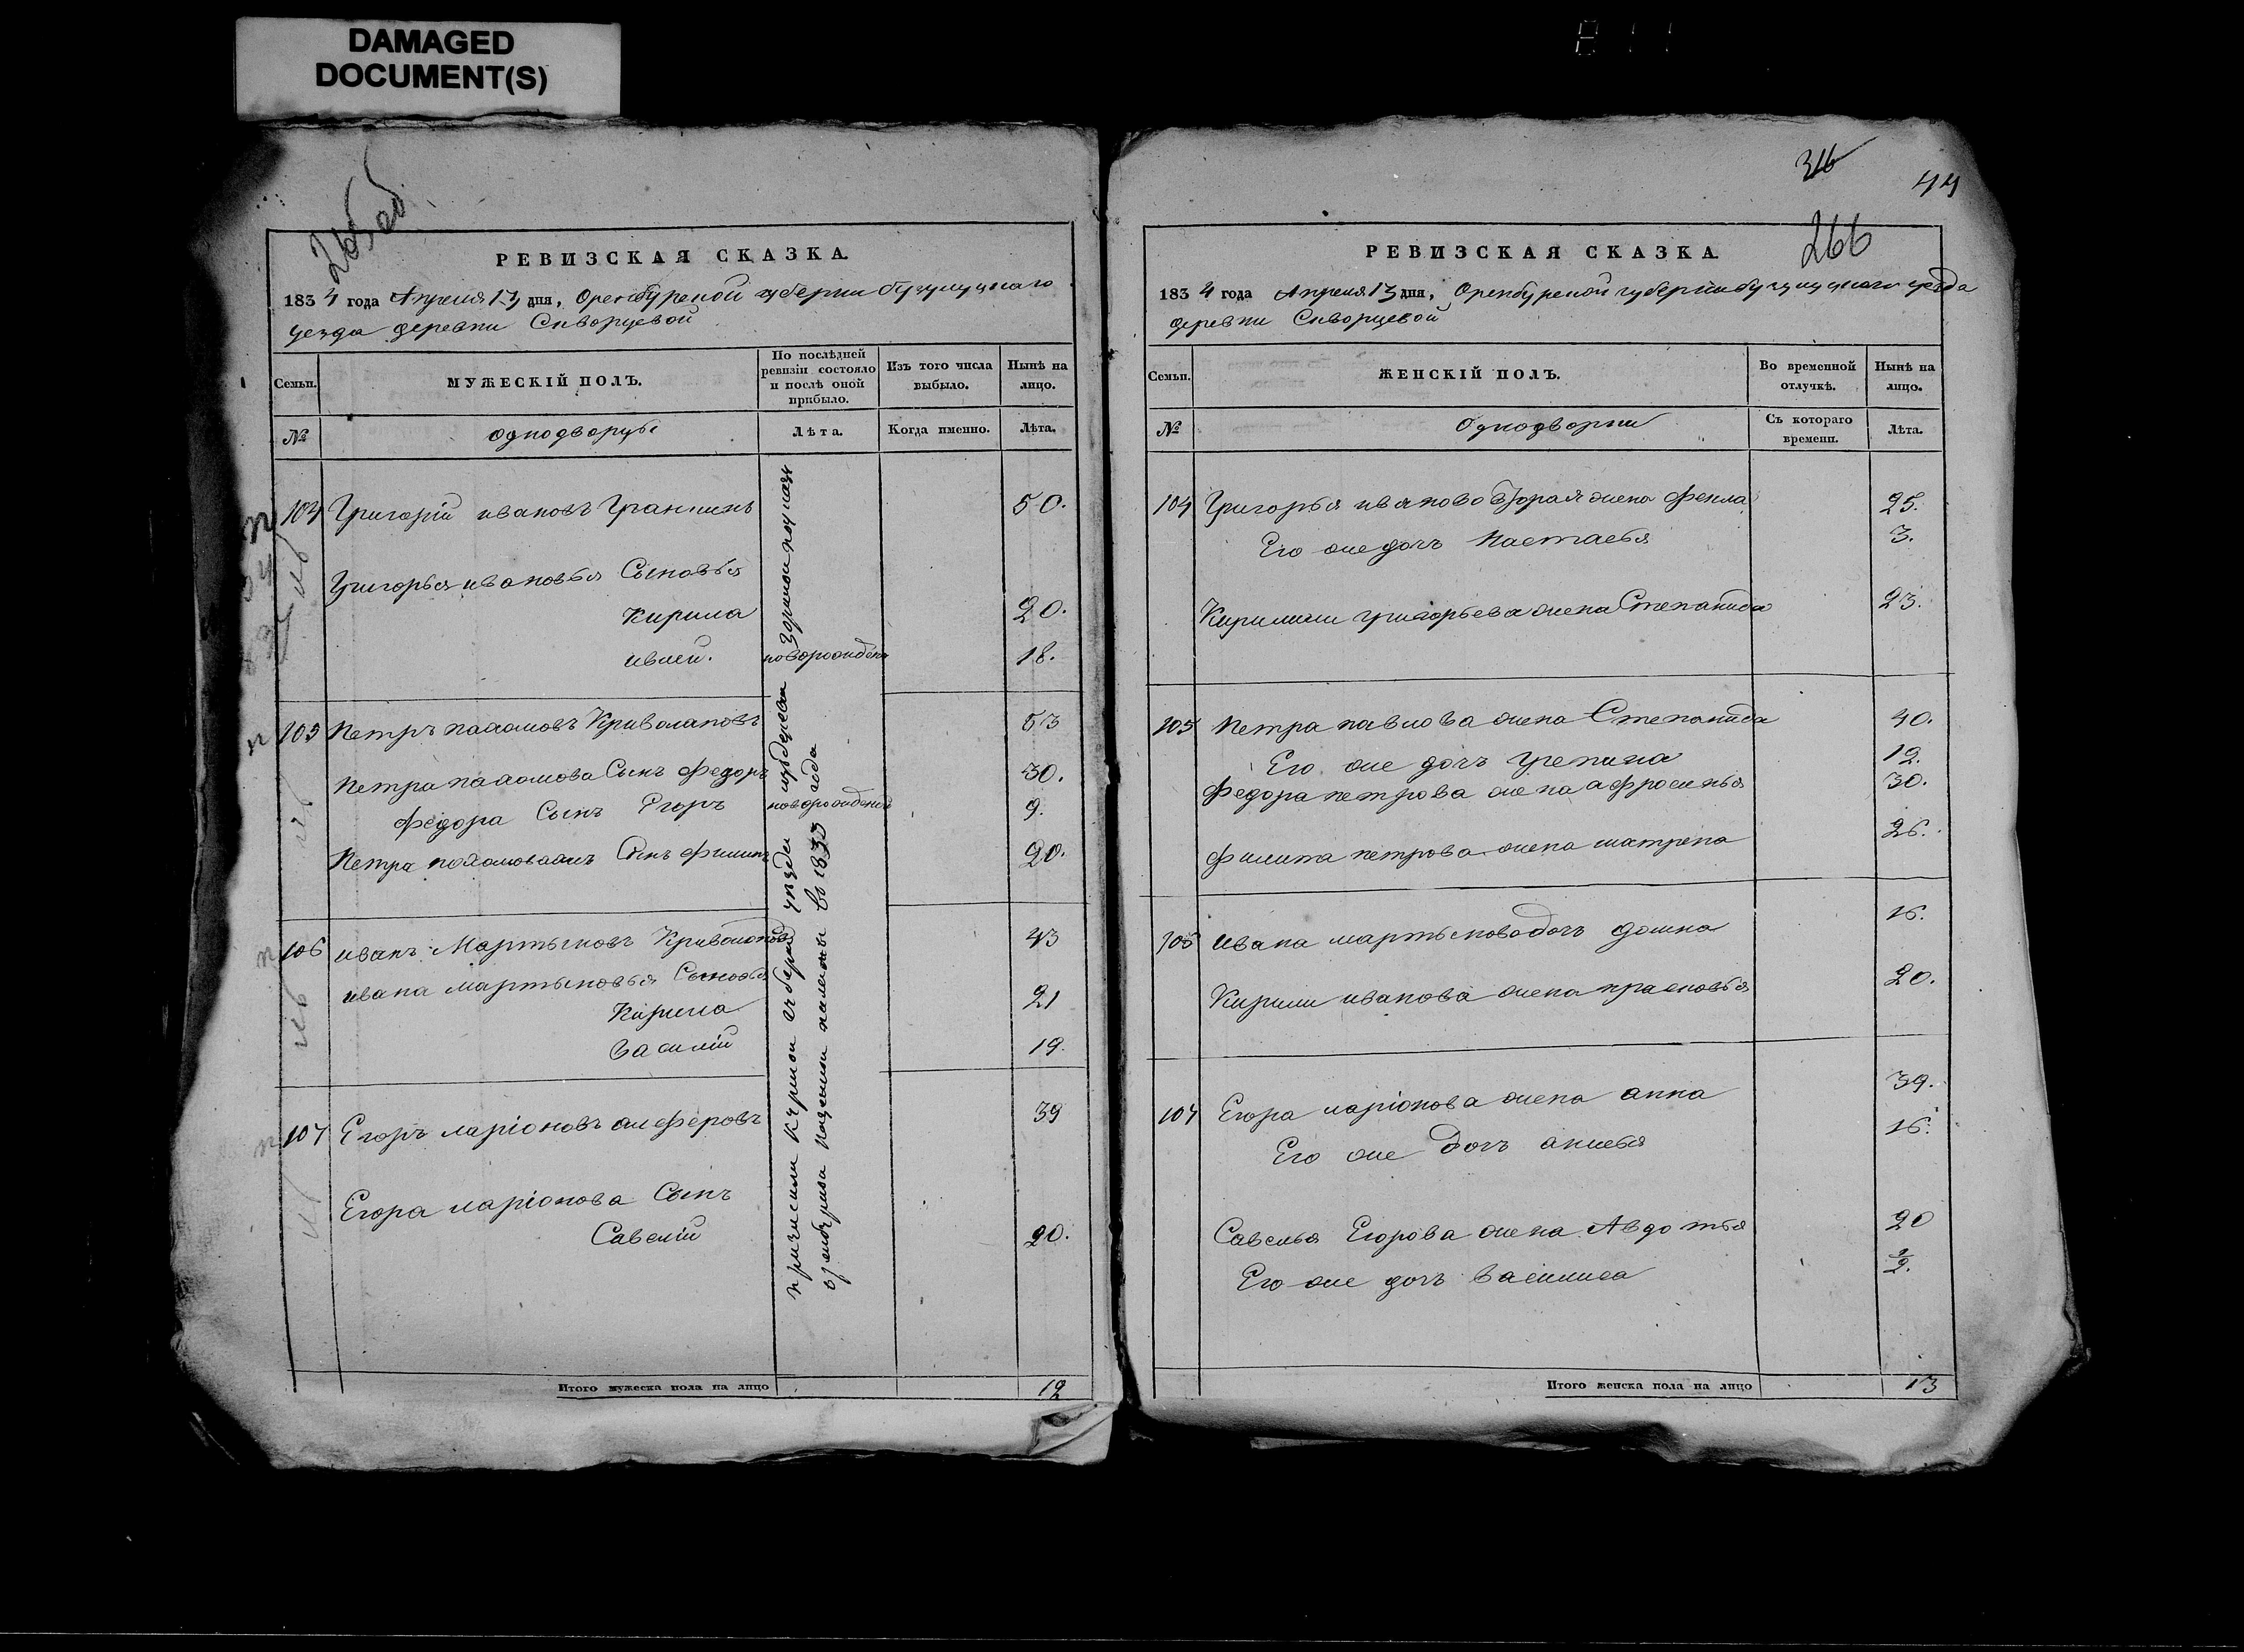 DAMAGED
DOCUMENT(S)
265 об
РЕВИЗСКАЯ СКАЗКА.
1834 года Апреля 13 дня, Оренбурской губернии бугулуцкаго
уезда деревни Скворцевой
Семьи.
МУЖЕСКІЙ ПОЛЪ.
По послѣдней
ревизіи состояло
и послѣ оной
прибыло.
Изъ того числа
выбыло.
Нынѣ на
лицо.
№
однодворцы
Лѣта.
Когда именно.
Лѣта.
104 Григорій ивановъ 50.
Григорья ивановья Сыновья
Кирила 20.
новорожденъ 18.
105 Петръ пахомовъ Криволаповъ 53
Петра пахомова Сынъ Федоръ 30.
Федора Сынъ Егоръ новорожденъ 9.
Петра пахомова Сынъ Филипъ 20.
106 иванъ Мартыновъ Криволаповъ 43
ивана мартыновья Сыновья
Кирила 21
василій 19.
107 Егоръ ларіоновъ алферовъ 39
Егора ларіонова Сынъ
Савелій 20.
Итого мужеска пола на лицо 12
316
44
266
РЕВИЗСКАЯ СКАЗКА.
1834 года Апреля 13 дня, Оренбурской губерніи бугулуцкаго уезда
деревни Скворцевой
Семьи.
ЖЕНСКІЙ ПОЛЪ.
Во временной
отлучкѣ.
Нынѣ на
лицо.
№
Однодворки
Съ котораго
времени.
Лѣта.
104 Григорья иванова вторая жена Фекла 25.
Его же дочь настасья 3.
Кирилы григорьева жена Степанида 23.
105 Петра павлова жена Степанида 40.
Его же дочь 12.
Федора петрова жена афросинья 30.
Филипа петрова жена матрена 26.
106 ивана мартынова дочь домна 16.
Кирилы иванова жена прасковья 20.
107 Егора ларіонова жена анна 39.
Его же дочь 16.
Савелья Егорова жена Авдотья 20
Его же дочь василиса
Итого женска пола на лицо 13